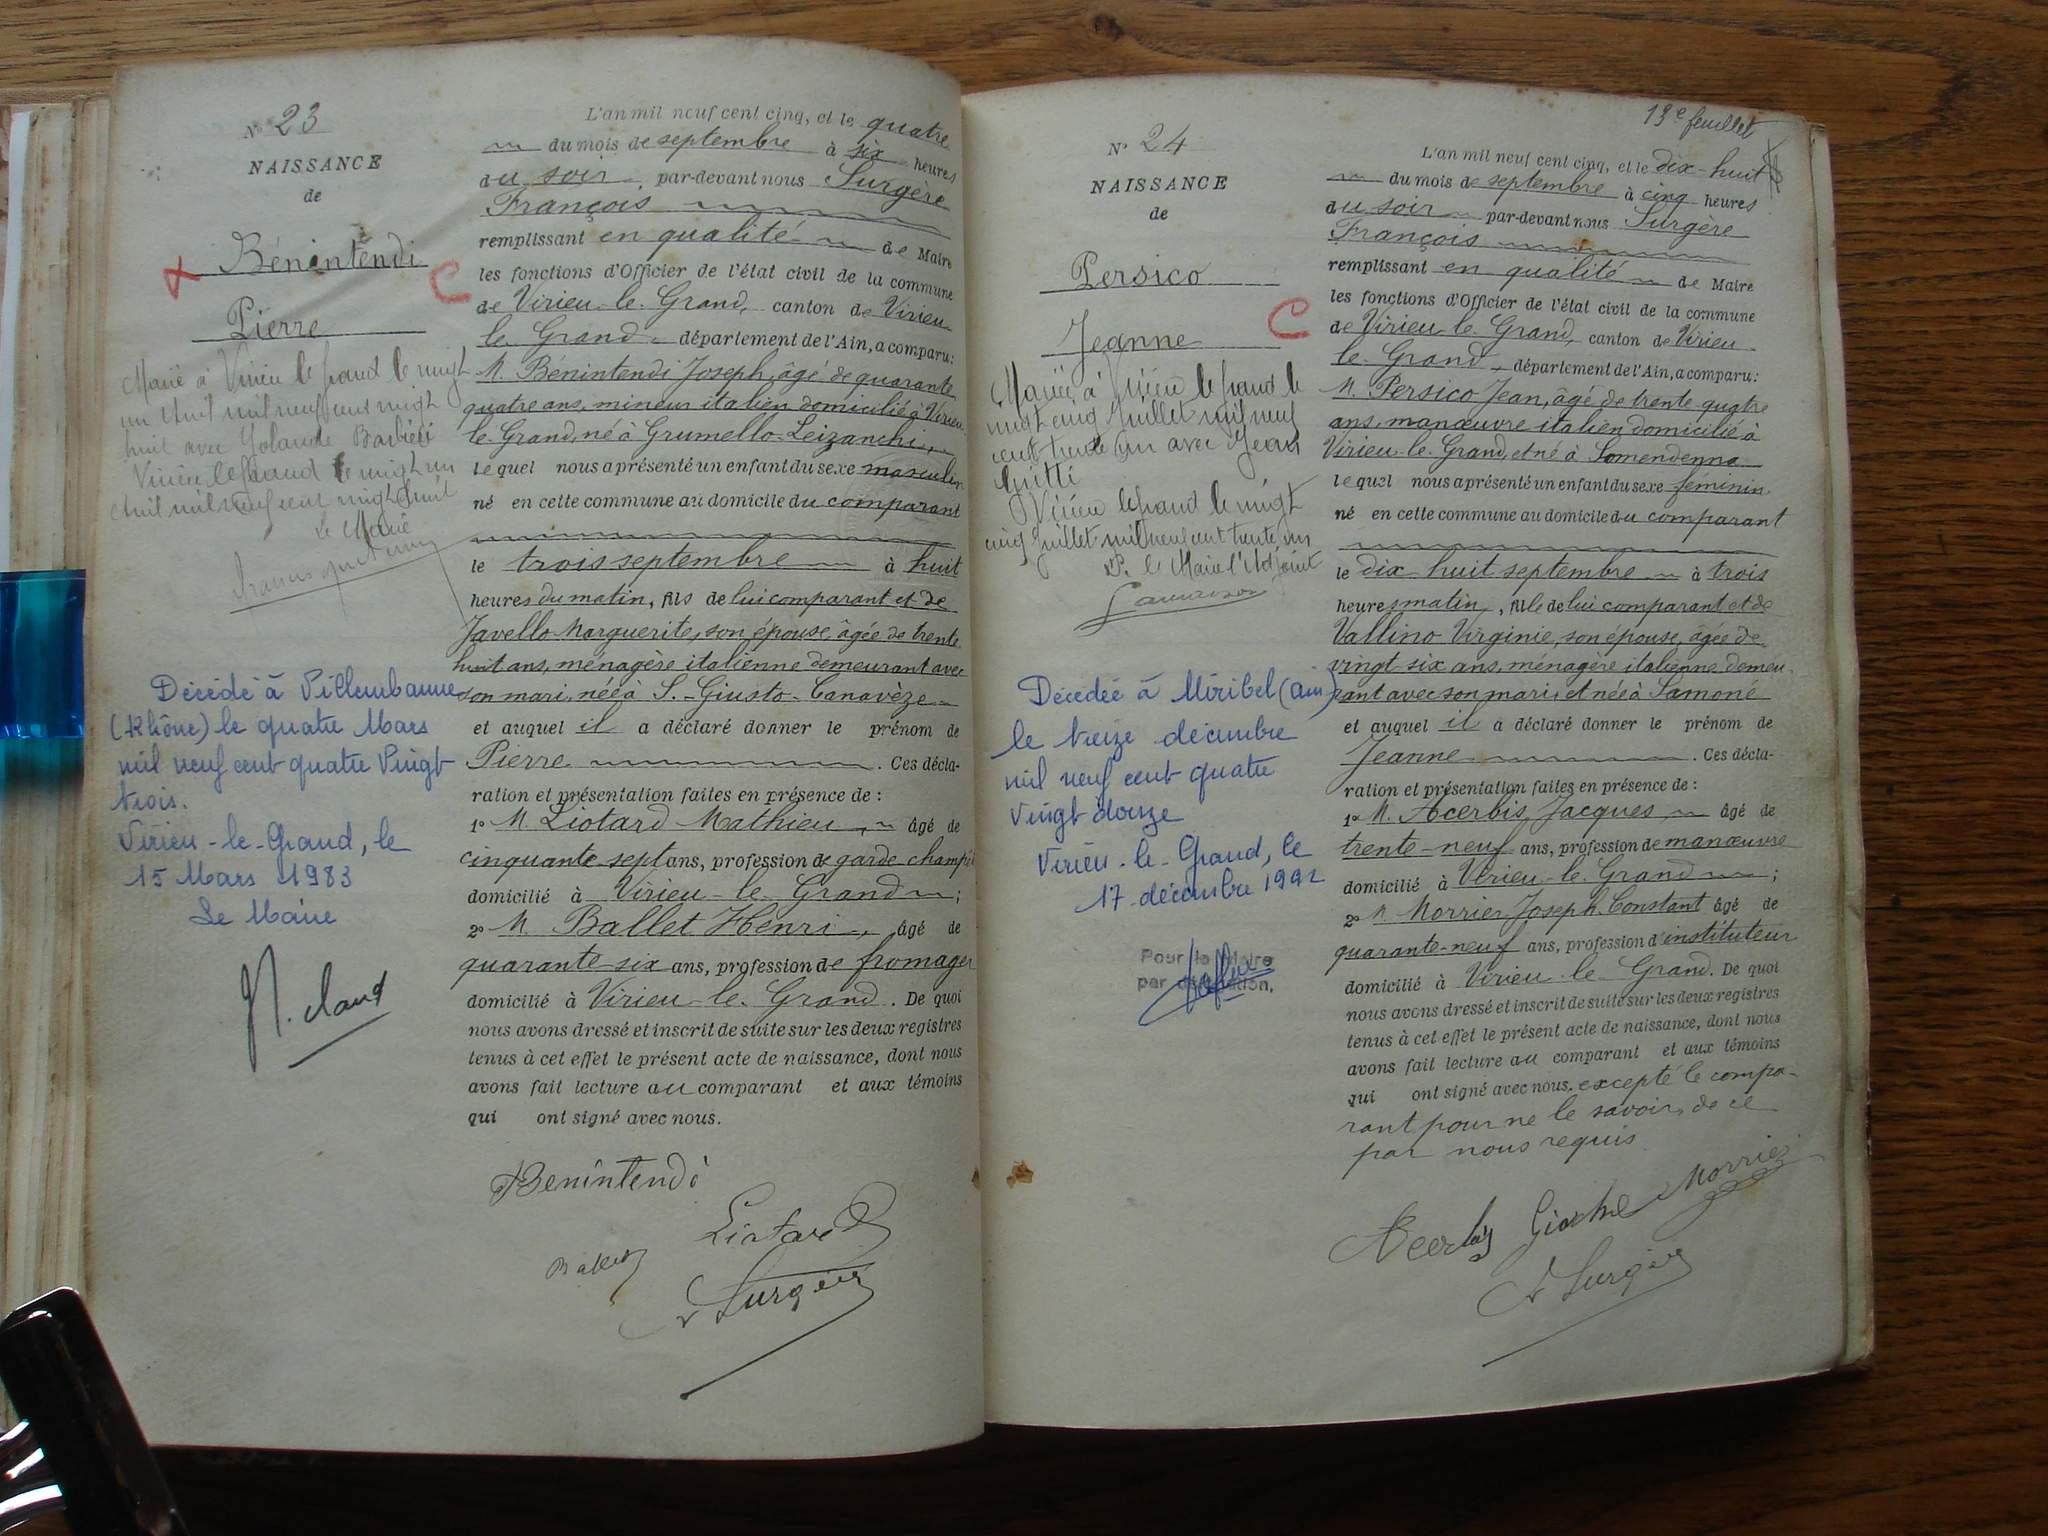 N° 23
NAISSANCE
de
Bénintendi
Pierre
Marié à Virieu le Grand le vingt
un Avril mil neuf cent vingt
huit avec Yolande Barbieri
Virieu le Grand le vingt un
Avril mil neuf cent vingt huit
Le Maire
Décédé à Villeurbanne
(Rhône) le quatre Mars
mil neuf cent quatre Vingt
trois.
Virieu-le-Grand, le
15 Mars 1983
Le Maire
L'an mil neuf cent cinq, et le quatre
du mois de septembre à six heures
du soir, par-devant nous Surgère
François
remplissant en qualité de Maire
les fonctions d'Officier de l'état civil de la commune
de Virieu-le-Grand, canton de Virieu-
le-Grand, département de l'Ain, a comparu:
M. Bénintendi Joseph, âgé de quarante
quatre ans, mineur italien domicilié à Virieu-
le-Grand, né à Grumello-
lequel nous a présenté un enfant du sexe masculin
né en cette commune au domicile du comparant
le trois septembre à huit
heures du matin, fils de lui comparant et de
Javello Marguerite, son épouse, âgée de trente
huit ans, ménagère italienne demeurant avec
son mari, née à S.-Giusto-Canavèze
et auquel il a déclaré donner le prénom de
Pierre. Ces décla-
ration et présentation faites en présence de :
1° M. Liotard Mathieu, âgé de
cinquante sept ans, profession de garde champê
domicilié à Virieu-le-Grand ;
2° M. Ballet Hénri, âgé de
quarante-six ans, profession de fromager
domicilié à Virieu-le-Grand. De quoi
nous avons dressé et inscrit de suite sur les deux registres
tenus à cet effet le présent acte de naissance, dont nous
avons fait lecture au comparant et aux témoins
qui ont signé avec nous.
Benintendi
Liotard
Ballet
Surgère
13e feuillet
N° 24
NAISSANCE
de
Persico
Jeanne
Mariée à Virieu le Grand le
vingt cinq Juillet mil neuf
cent trente un avec Jean
Virieu le Grand le vingt
cinq Juillet mil neuf cent trente un
P. le Maire l'Adjoint
Décédée à Miribel (Ain)
le treize décembre
mil neuf cent quatre
Vingt douze
Virieu-le-Grand, le
17 décembre 1992
Pour le Maire
par délégation,
L'an mil neuf cent cinq, et le dix-huit
du mois de septembre à cinq heures
du soir par-devant nous Surgère
François
remplissant en qualité de Maire
les fonctions d'Officier de l'état civil de la commune
de Virieu-le-Grand, canton de Virieu-
le-Grand, département de l'Ain, a comparu:
M. Persico Jean, âgé de trente-quatre
ans, manœuvre italien domicilié à
Virieu-le-Grand, et né à Somendenna
lequel nous a présenté un enfant du sexe féminin
né en cette commune au domicile du comparant
le dix huit septembre à trois
heures matin, fille de lui comparant et de
Vallino Virginie, son épouse, âgée de
vingt-six ans, ménagère italienne demeu-
rant avec son mari, et née à Samoné
et auquel il a déclaré donner le prénom de
Jeanne. Ces décla-
ration et présentation faites en présence de :
1° M. Acerbis Jacques, âgé de
trente-neuf ans, profession de manœuvre
domicilié à Virieu-le-Grand ;
2° M. Morrier Joseph Constant âgé de
quarante-neuf ans, profession d'instituteur
domicilié à Virieu-le-Grand. De quoi
nous avons dressé et inscrit de suite sur les deux registres
tenus à cet effet le présent acte de naissance, dont nous
avons fait lecture au comparant et aux témoins
qui ont signé avec nous. excepté le compa-
rant pour ne le savoir, de ce
par nous requis
Morrier
Acerbis
Surgère